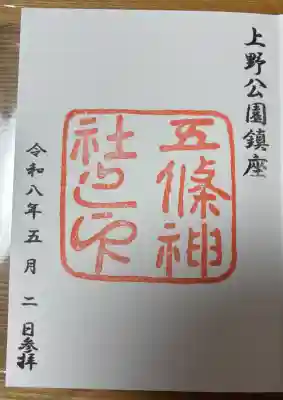 上野公園鎮座
五條神
社之印
令和八年五月二日参拝